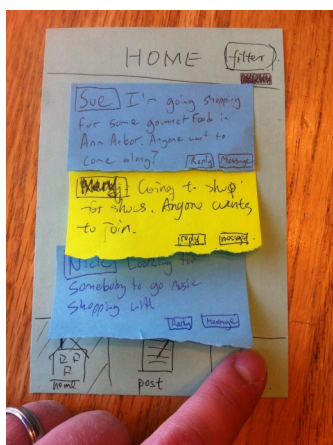 HOME
filter
Sue I'm going shopping
for some gourmet food in
Ann Arbor. Anyone want to
come along?
Reply Message
Going to shop
for shoes. Anyone wants
to join.
reply message
Nick Looking for
Somebody to go music
Shopping with
Reply Message
home
post